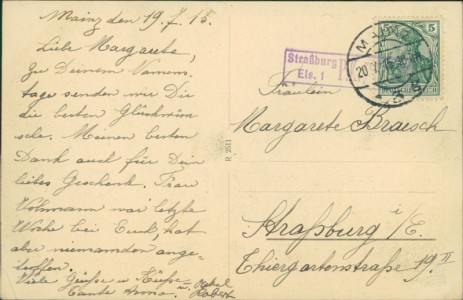 Mainz den 19.7.15.
Liebe Margarete,
Zu Deinem Namens-
tage senden wir Dir
die besten Glückwün-
sche. Meinen besten
Dank auch für Dein
liebes Geschenk. Frau
Volzmann war letzte
Woche bei Euch, hat
aber niemanden ange-
troffen.
Viele Grüße u. Küsse
Tante Anna. u. Onkel
Robert
Straßburg
Els. 1
MAINZ
5
Fräulein
Margarete Braesch
Straßburg i/E.
Thiergartenstraße 19 II
R 2511